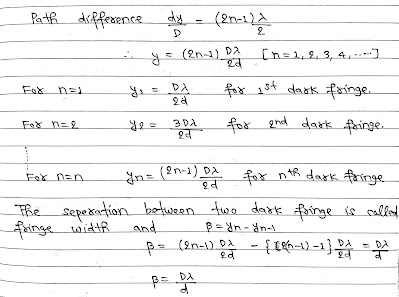 Path difference dy/D = (2n-1) λ/2
∴ y = (2n-1) Dλ/2d [n=1, 2, 3, 4, .....]
For n=1 y₁ = Dλ/2d for 1st dark fringe.
For n=2 y₂ = 3Dλ/2d for 2nd dark fringe.
For n=n yn = (2n-1) Dλ/2d for nth dark fringe
The seperation between two dark fringe is called
fringe width and β = yn - yn-1
β = (2n-1) Dλ/2d - {2(n-1)-1} Dλ/2d = Dλ/d
β = Dλ/d